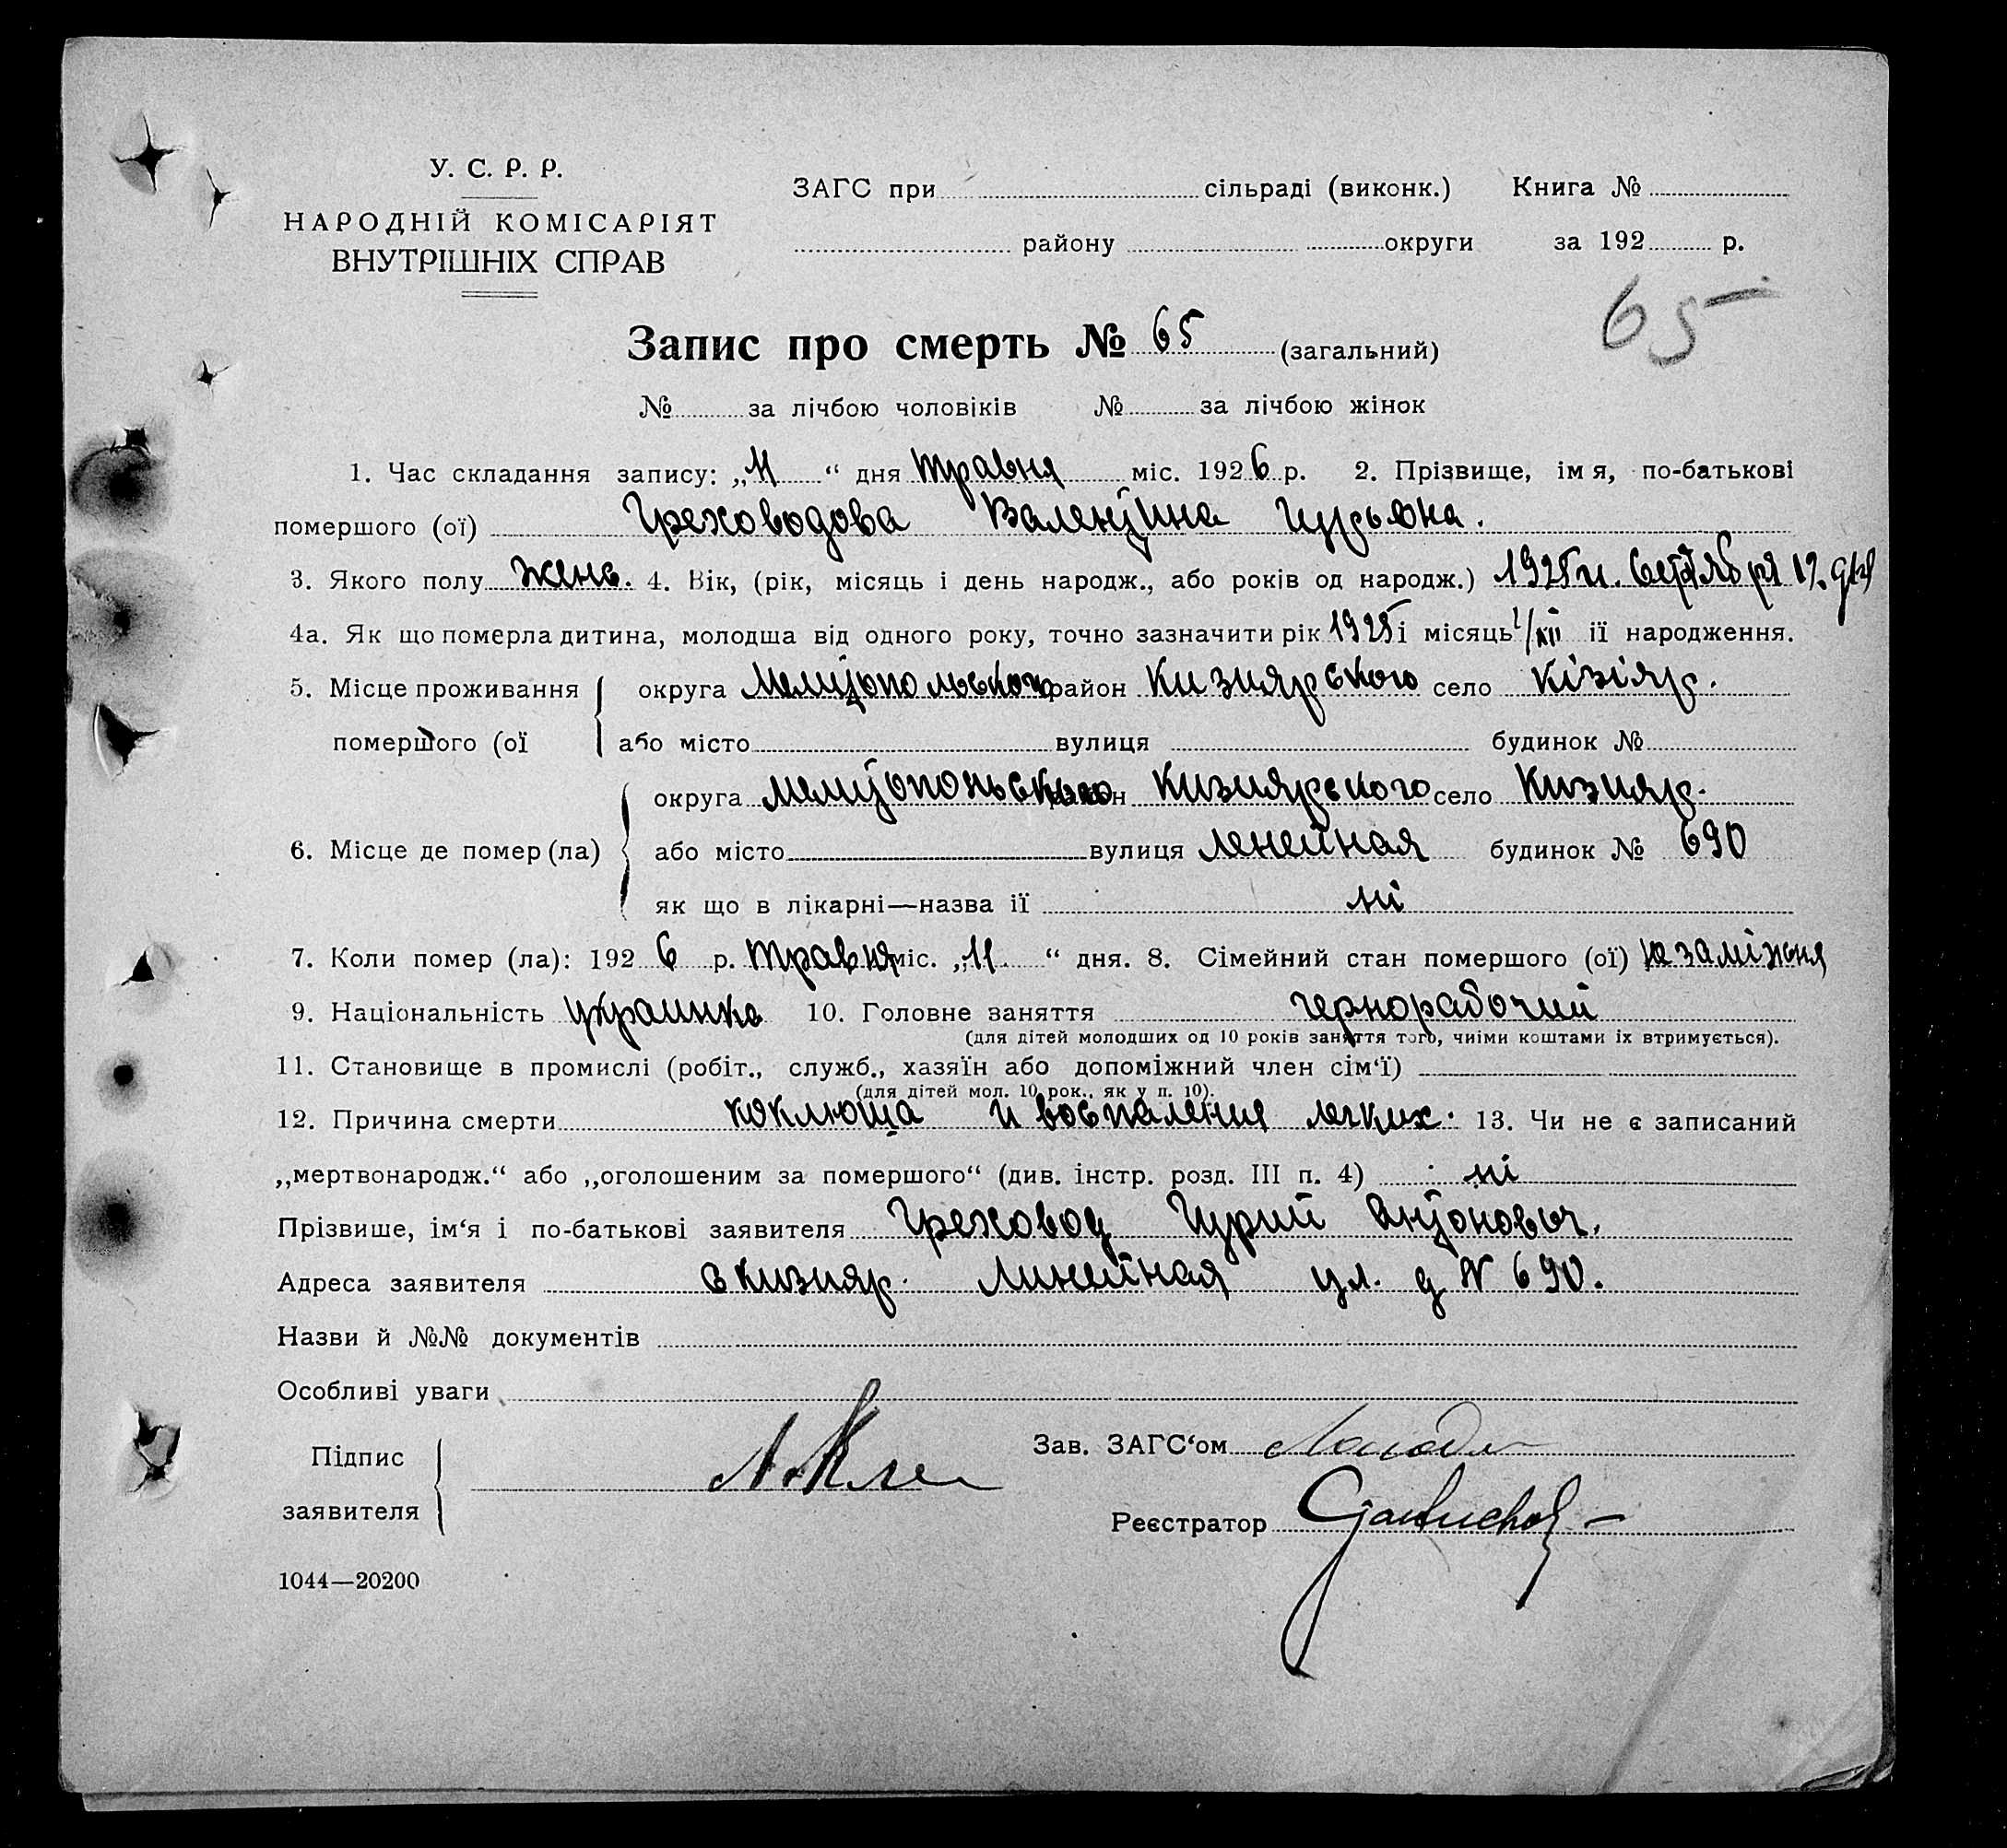 У. С. Р. Р.
НАРОДНІЙ КОМІСАРІЯТ
ВНУТРІШНІХ СПРАВ
ЗАГС при сільраді (виконк.) Книга №
району округи за 192 р.
65
Запис про смерть № 65 (загальний)
№ за лічбою чоловіків № за лічбою жінок
1. Час складання запису: „11“ дня травня міс. 1926 р. 2. Прізвище, ім я, по-батькові
помершого (ої) Греховодова Валентина Гурьевна.
3. Якого полу жено. 4. Вік, (рік, місяць і день народж., або років од народж.) 1925 г. Сентября 12. дня
4а. Як що померла дитина, молодша від одного року, точно зазначити рік 1925 і місяць її народження.
5. Місце проживання округа Мелитопольского район Кизиярского село Кізіяр.
помершого (ої або місто вулиця будинок №
округа Мелитопольского район Кизиярского село Кизияр.
6. Місце де помер (ла) або місто вулиця Ленейная будинок № 690
як що в лікарні—назва її ні
7. Коли помер (ла): 1926 р. травня міс. „11.“ дня. 8. Сімейний стан помершого (ої) незаміжня
9. Національність украинка 10. Головне заняття чернорабочий
(для дітей молодших од 10 років заняття того, чиїми коштами їх втримується).
11. Становище в промислі (робіт., служб., хазяїн або допоміжний член сім‘ї)
(для дітей мол. 10 рок., як у п. 10).
12. Причина смерти коклюша и воспаления легких. 13. Чи не є записаний
„мертвонародж.“ або „оголошеним за помершого“ (див. інстр. розд. III п. 4) ні
Прізвише, ім‘я і по-батькові заявителя Греховод Гурий Антонович.
Адреса заявителя с Кизияр. Линейная ул. д № 690.
Назви й №№ документів
Особливі уваги
Підпис
заявителя
Зав. ЗАГС‘ом
Реєстратор
1044—20200